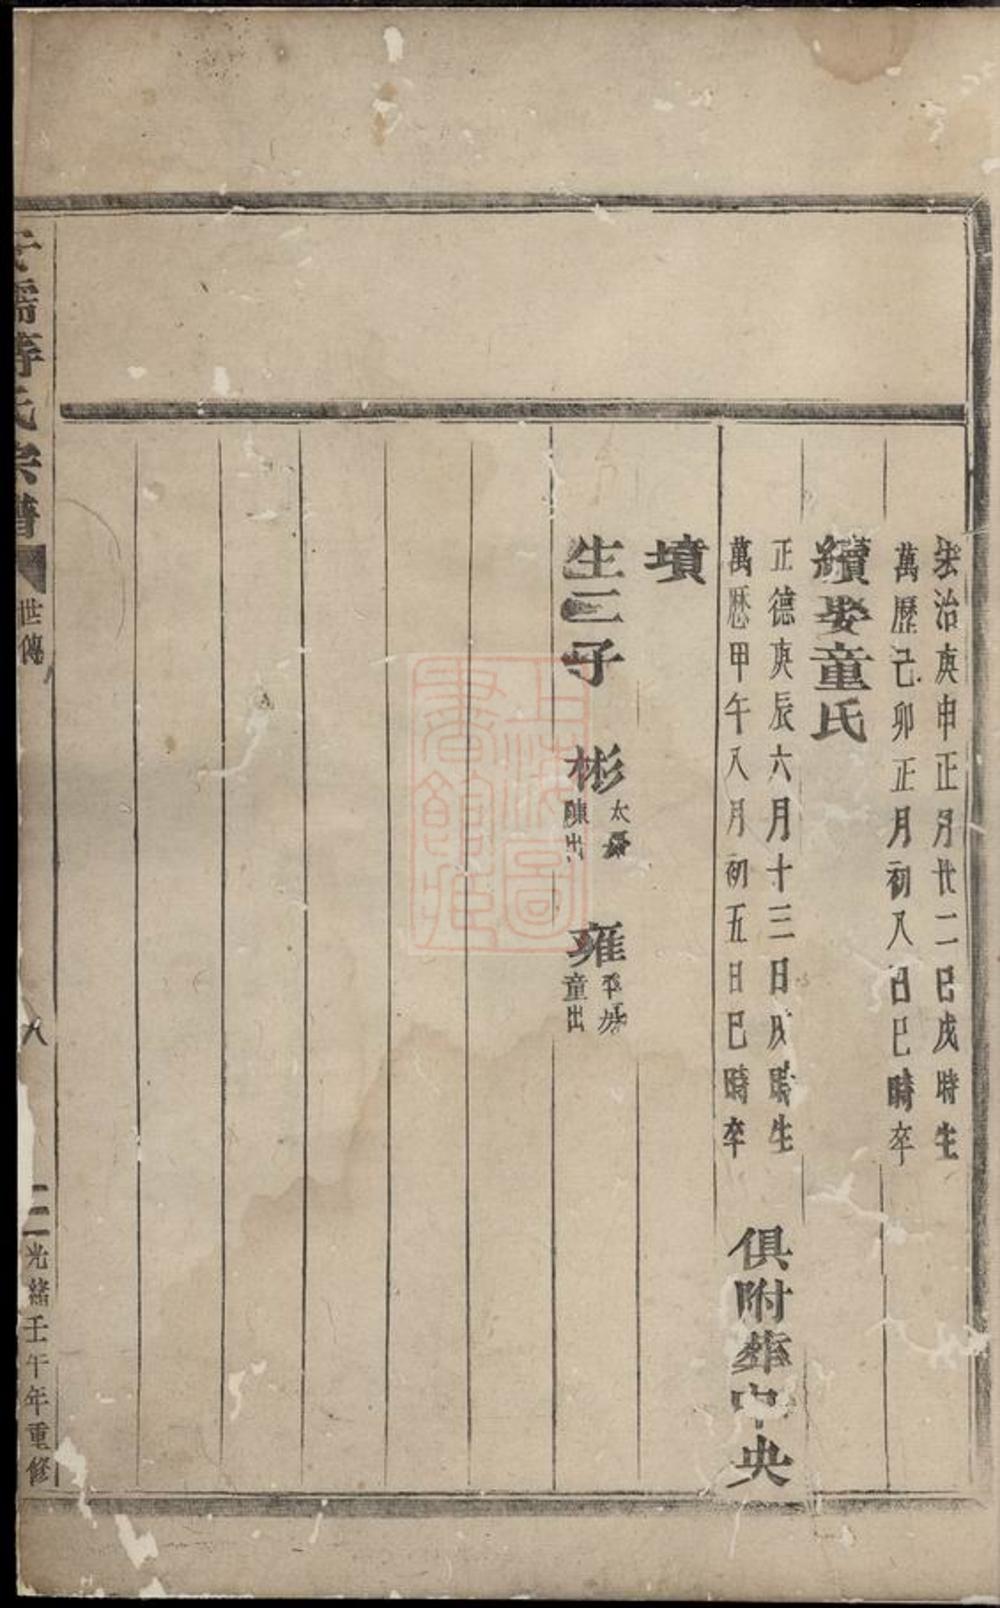 弘治庚申正月廿二日戌時生
萬歷己卯正月初八日巳時卒
續娶童氏
正德庚辰六月十三日戌時生
萬歷甲午八月初五日巳時卒
俱附葬中央
墳
生二子 彬 太 陳出 雍 平 童出
氏宗譜
世傳
光緒壬午年重修
上海圖書館藏